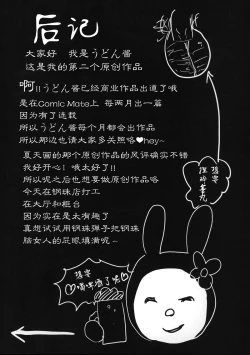 后记
大家好 我是うどん酱
这是我的第二个原创作品
啊!!うどん酱已经商业作品出道了哦
是在Comic Mate上 每两月出一篇
因为有了连载
所以うどん酱每个月都会出作品
所以那边也请大家多关照咯♥hey~
夏天画的那个原创作品的风评确实不错
我好开心！哦太好了!!
所以呢之后也想要做原创作品咯
今天在钢珠店打工
在大厅和柜台
因为实在是太有趣了
真想试试用钢珠弹子把钢珠
脑女人的屁眼填满呢~
想要